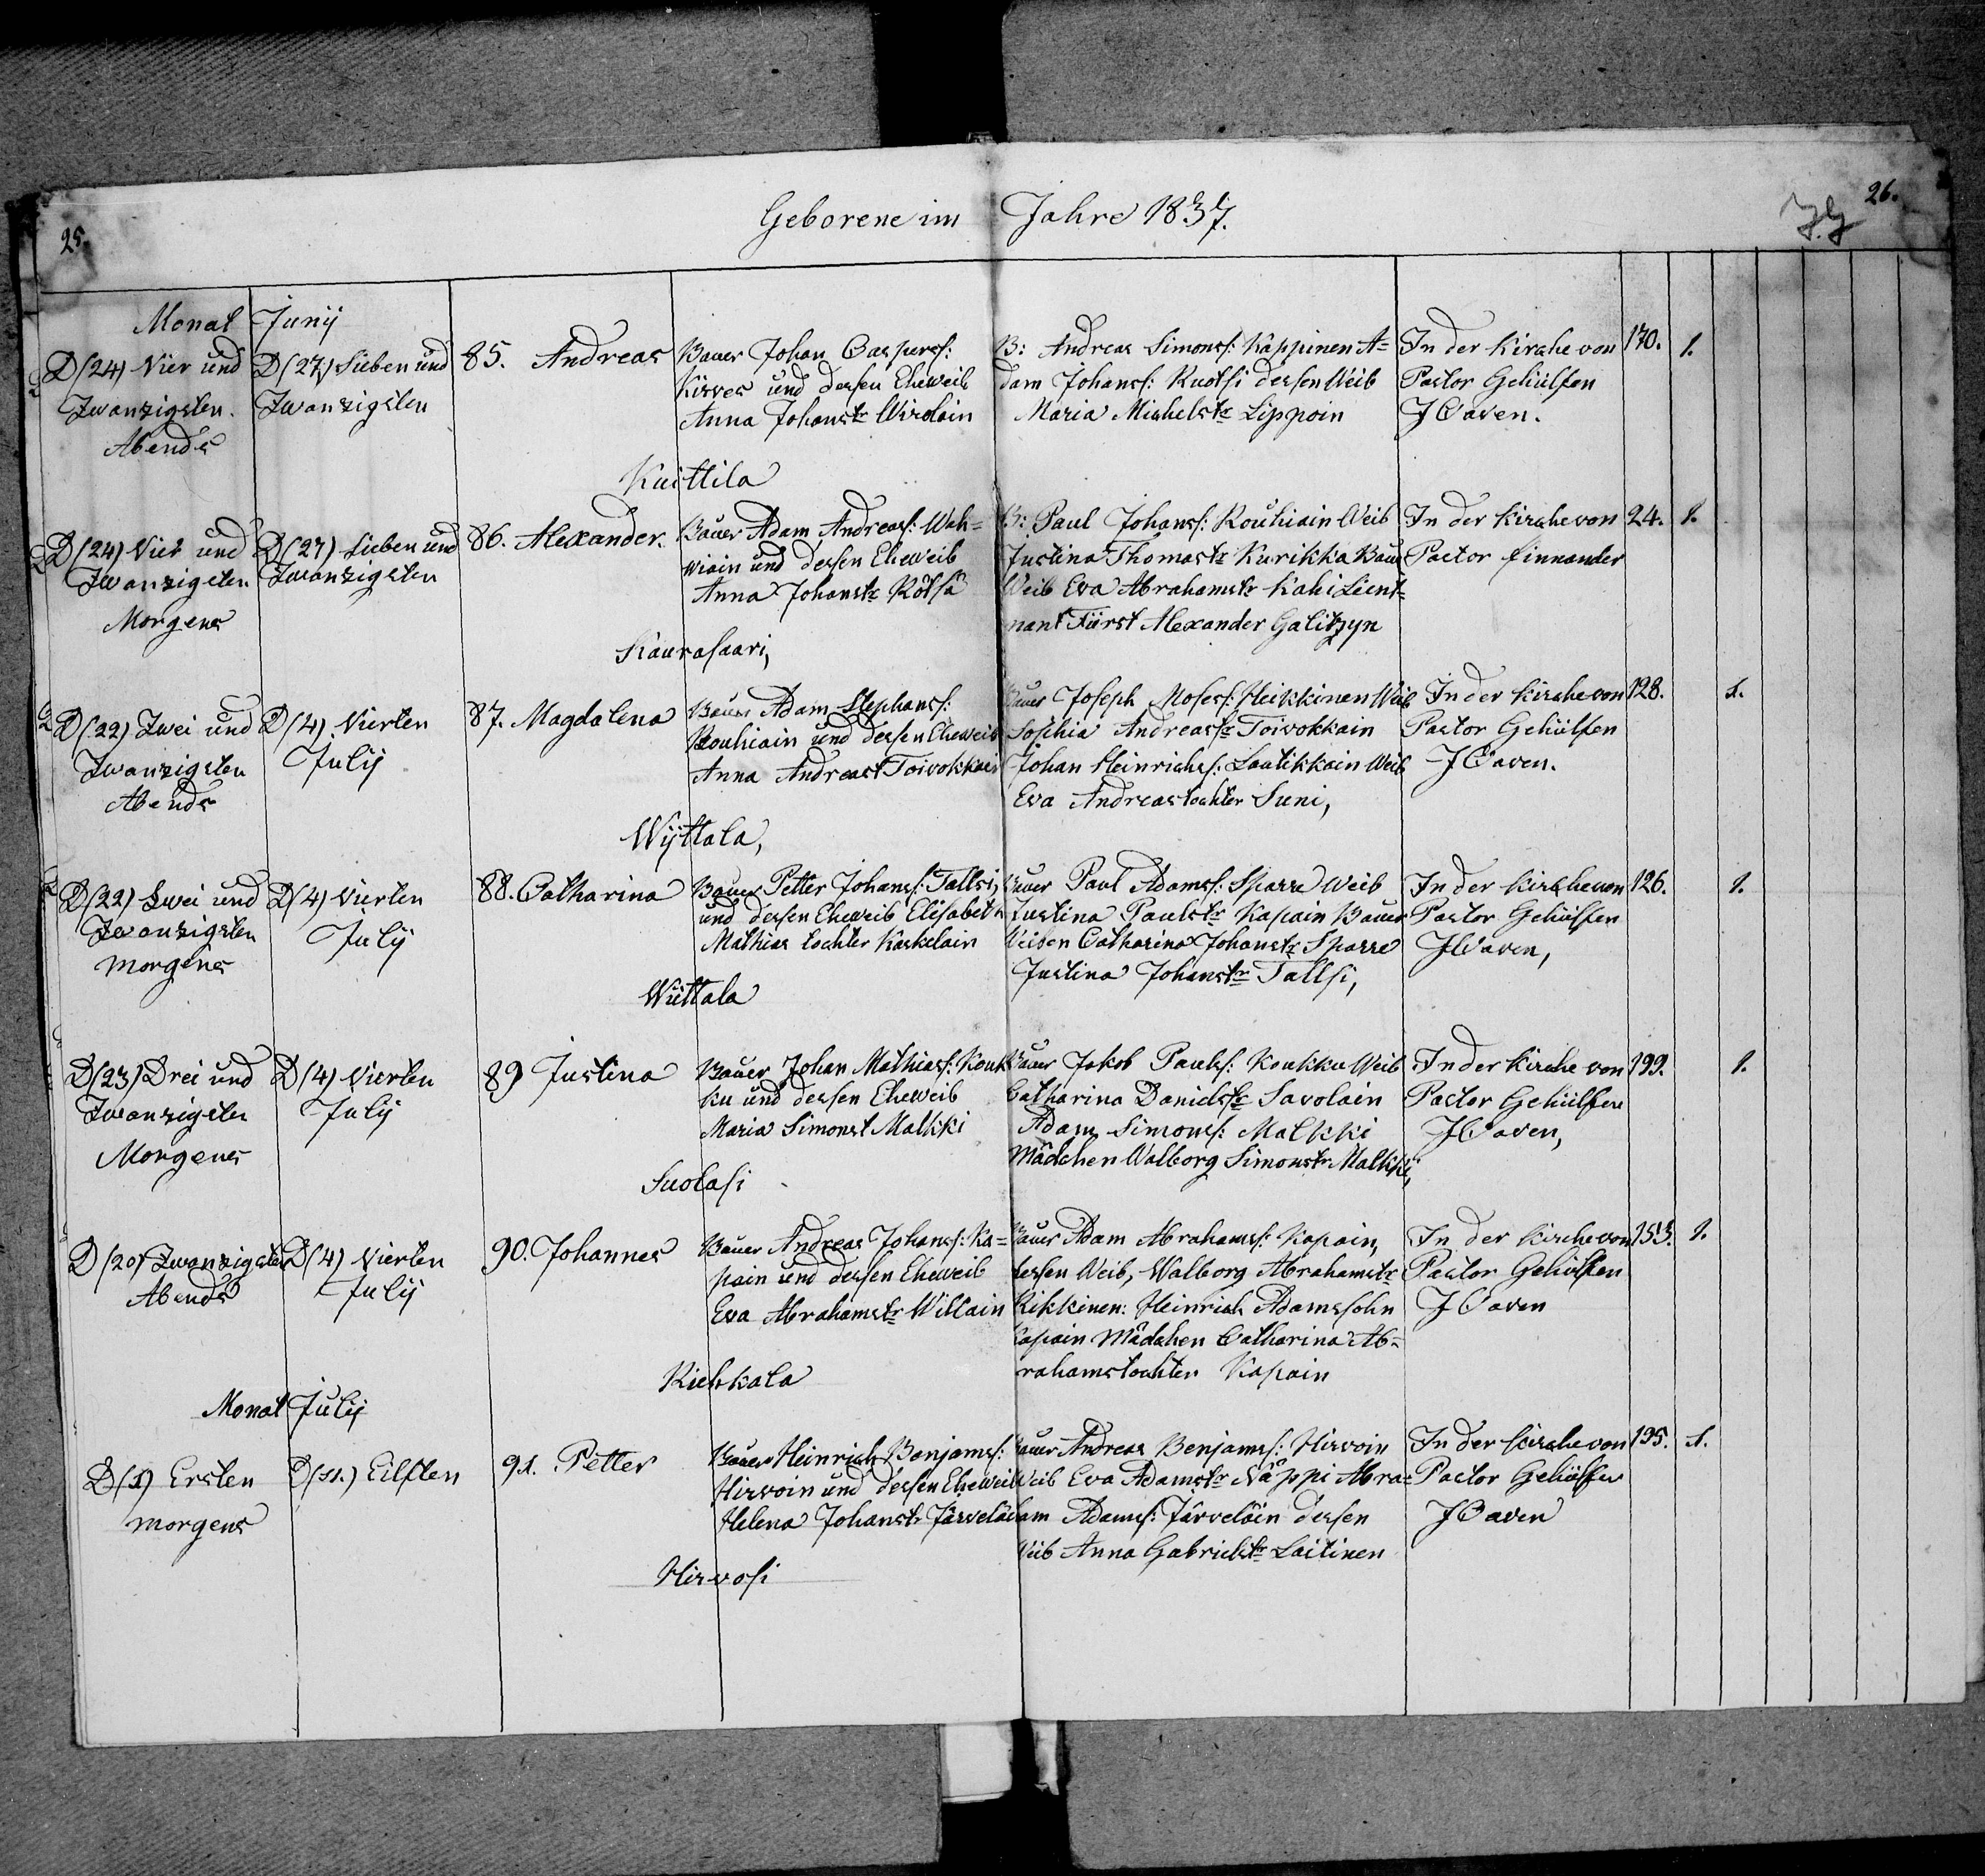 25.
Geborene im Jahre 1837.
26.
Monat Junij
D (24) Vier und
Zwanzigsten.
Abends
D (27) Sieben und
Zwanzigsten
85. Andreas
Bauer Johan Caspersf:
Kirves und dessen Eheweib
Anna Johanstr Wirolain
B: Andreas Simonsf: Käppinen A=
dam Johansf: Kuotsi dessen Weib
Maria Michelstr Lippoin
In der Kirche von
Pastor Gehülfen
J Caven.
170.
1.
Kuittila
D (24) Vier und
Zwanzigsten
Morgens
D (27) Sieben und
Zwanzigsten
86. Alexander.
Bauer Adam Andreasf: Wah=
wiain und dessen Eheweib
Anna Johanstr Kötsä
B: Paul Johansf: Rouhiain Weib
Justina Thomastr Kurikka Bauer
Weib Eva Abrahamstr Kahi Lieut=
nant Fürst Alexander Galitzyn
In der Kirche von
Pastor Finnander
24.
1.
Kaurasaari,
D (22) Zwei und
Zwanzigsten
Abends
D (4) Vierten
Julij
87. Magdalena
Bauer Adam Stephansf:
Rouhiain und dessen Eheweib
Anna Andreast Toivokkain
Bauer Joseph Mosesf: Heikkinen Weib
Sophia Andreastr Toivokkain
Johan Heinrichsf: Lautikkain Weib
Eva Andreastochter Suni,
In der Kirche von
Pastor Gehülfen
J Caven.
128.
1.
Wijttala,
D (22) Zwei und
Zwanzigsten
Morgens
D (4) Vierten
Julij
88. Catharina
Bauer Petter Johansf: Tallsi,
und dessen Eheweib Elisabeth
Mathias tochter Kaskelain
Bauer Paul Adamsf: Sparre Weib
Justina Paulstr Kapain Bauer
Weiben Catharina Johanstr Sparre
Justina Johanstr Tallsi,
In der Kirche von
Pastor Gehülfen
J Caven,
126.
1.
Wiittala
D (23) Drei und
Zwanzigsten
Morgens
D (4) Vierten
Julij
89 Justina
Bauer Johan Mathiasf: Kouk
ku und dessen Eheweib
Maria Simonst Malkki
Bauer Jakob Paulsf: Koukku Weib
Catharina Danielstr Savolain
Adam Simonsf: Malkki
Mädchen Walborg Simonstr Malkki,
In der Kirche von
Pastor Gehülfen
J Caven,
199.
1.
Suolasi
D (20) Zwanzigsten
Abends
D (4) Vierten
Julij
90. Johannes
Bauer Andreas Johansf: Ka=
pain und dessen Eheweib
Eva Abrahamstr Willain
Bauer Adam Abrahamsf: Kapain,
dessen Weib, Walborg Abrahamstr
Kikkinen: Heinrich Adamssohn
Kapain Mädchen Catharina Ab=
rahamstochter Kapain
In der Kirche von
Pastor Gehülfen
J Caven
153.
1.
Riehkala
Monat Julij
D (1) Ersten
Morgens
D (11.) Eilften
91. Petter
Bauer Heinrich Benjamsf:
Hirvoin und dessen Eheweib
Helena Johanstr Järveläin
Bauer Andreas Benjamsf: Hirvoin
Weib Eva Adamstr Näppi Abra=
ham Adamsf: Järveläin dessen
Weib Anna Gabrielstr Laitinen
In der Kirche von
Pastor Gehülfen
J Caven
195.
1.
Hirvosi